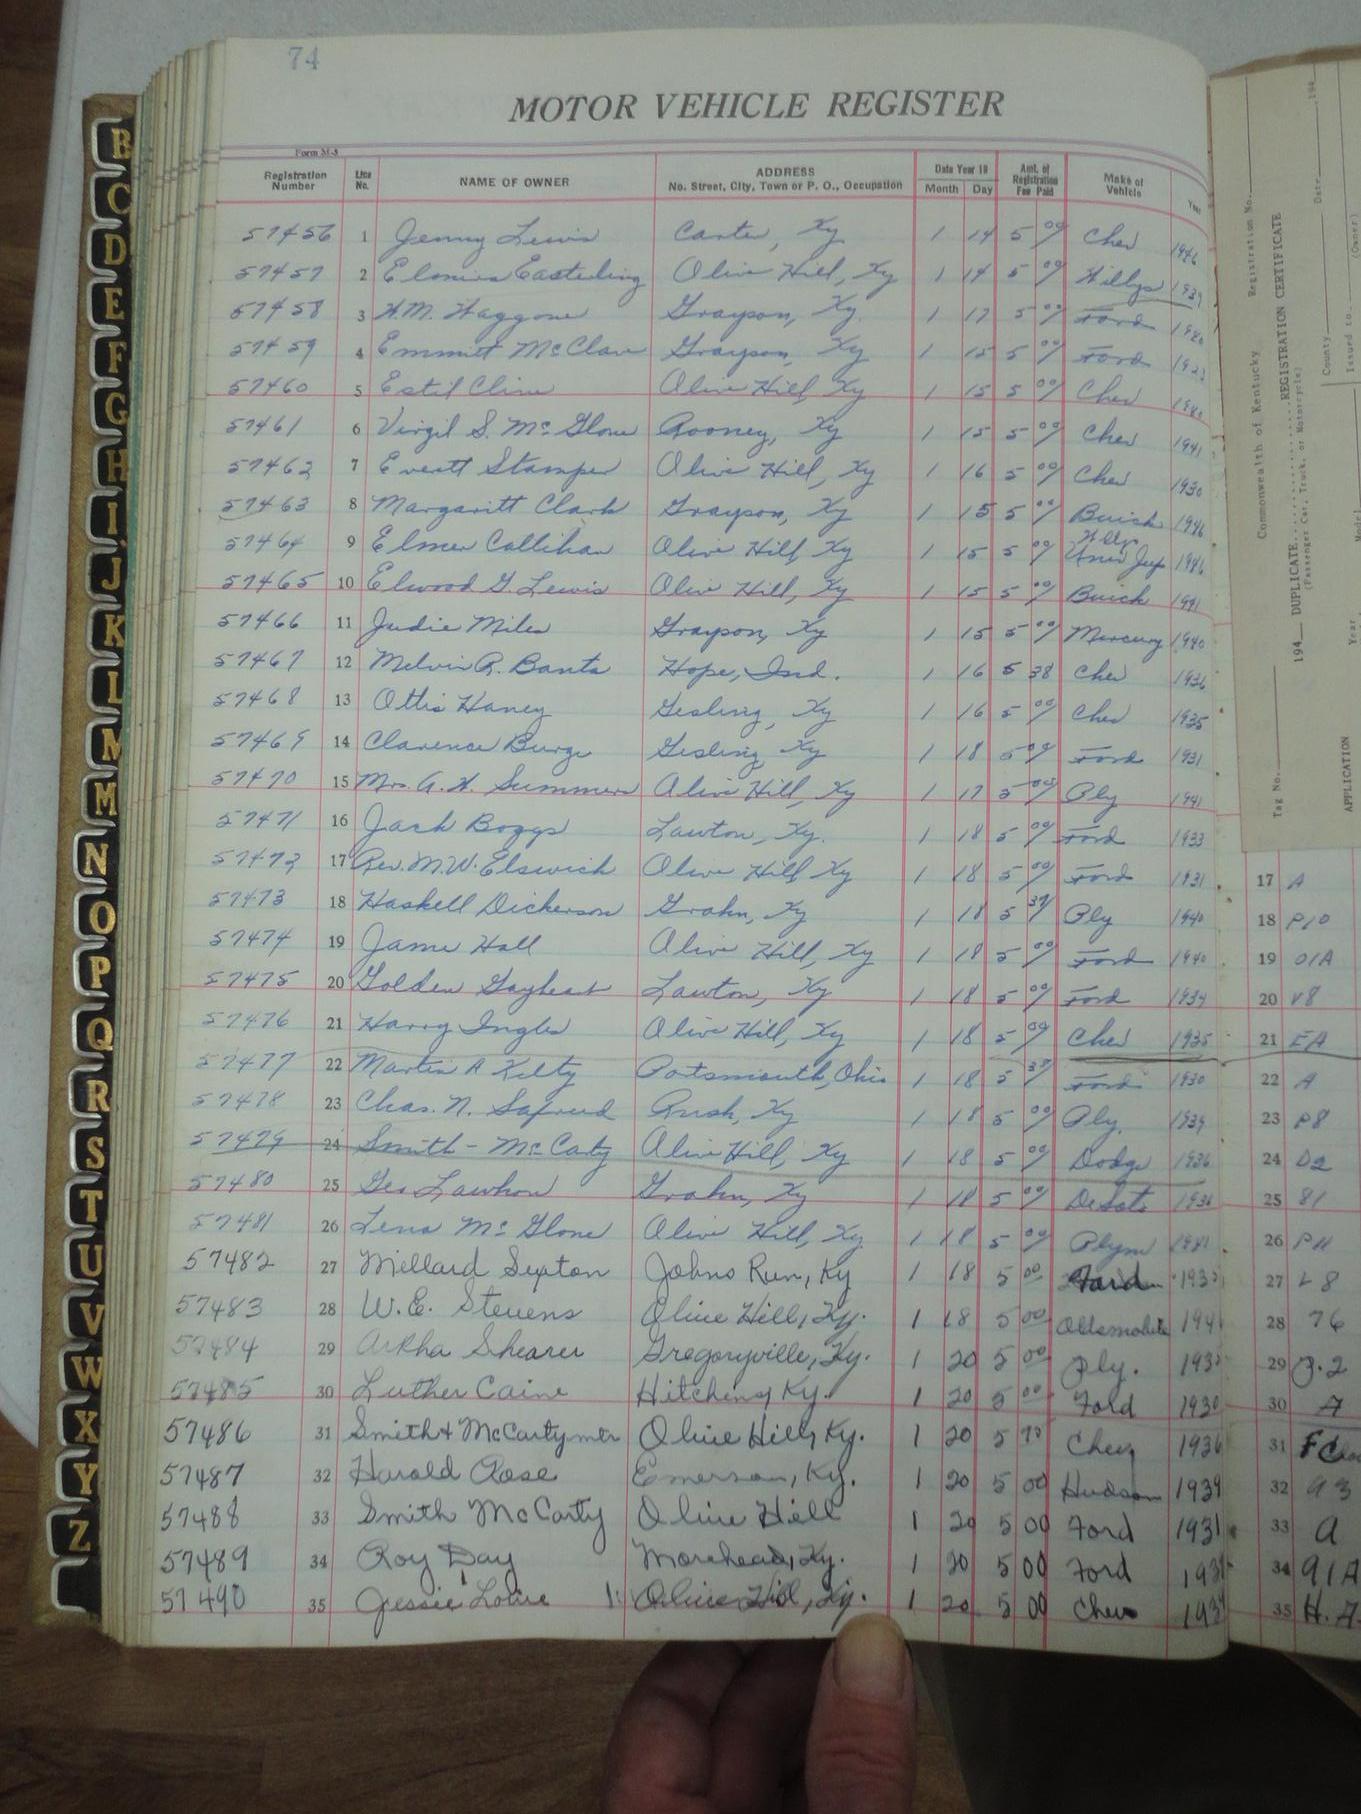 74
MOTOR VEHICLE REGISTER
Form M-8
Registration Number Line No. NAME OF OWNER ADDRESS No. Street, City, Town or P. O., Occupation Date Year 19 Month Day Amt. of Registration Fee Paid Make of Vehicle Year
57456 1 Jenny Lewis Carter, Ky 1 14 5 00 Chev 1946
57457 2 Easterling Olive Hill, Ky 1 14 5 00 Willys 1939
57458 3 Grayson, Ky. 1 17 5 00 Ford
57459 4 Emmitt McClave Grayson, Ky 1 15 5 00 Ford
57460 5 Estil Cline Olive Hill, Ky 1 15 5 00 Chev
57461 6 Virgil S. McGlone Rooney, Ky 1 15 5 00 Chev 1941
57462 7 Everett Stamper Olive Hill, Ky 1 16 5 00 Chev 1930
57463 8 Margaritt Clark Grayson, Ky 1 15 5 00 Buick 1946
57464 9 Elmer Callihan Olive Hill, Ky 1 15 5 00 1946
57465 10 Elwood G. Lewis Olive Hill, Ky 1 15 5 00 Buick 1941
57466 11 Judie Miles Grayson, Ky 1 15 5 00 Mercury 1940
57467 12 Melvin R. Banta Hope, Ind. 1 16 5 38 Chev 1936
57468 13 Ottis Haney Gesling, Ky 1 16 5 00 Chev 1935
57469 14 Clarence Burge Gesling, Ky 1 18 5 00 Ford 1931
57470 15 Mrs. A. H. Summers Olive Hill, Ky 1 17 5 00 Ply 1941
57471 16 Jack Boggs Lawton, Ky. 1 18 5 00 Ford 1933
57472 17 Rev. M.W. Elswick Olive Hill, Ky 1 18 5 00 Ford 1931 17 A
57473 18 Haskell Dickerson Grahn, Ky 1 18 5 Ply 1940 18 P10
57474 19 Jame Hall Olive Hill, Ky 1 18 5 00 Ford 1940 19 01A
57475 20 Golden Gayheart Lawton, Ky 1 18 5 00 Ford 1934 20 V8
57476 21 Harry Ingles Olive Hill, Ky 1 18 5 00 Chev 1935 21 EA
57477 22 Martin A Kelty Portsmouth, Ohio 1 18 5 Ford 1930 22 A
57478 23 Chas. N. Rush, Ky 1 18 5 00 Ply. 1939 23 P8
57479 24 Smith - McCarty Olive Hill, Ky 1 18 5 00 Dodge 1936 24 D2
57480 25 Geo Lawhon Grahn, Ky 1 18 5 00 DeSoto 1936 25 81
57481 26 Lena McGlone Olive Hill, Ky 1 18 5 00 Plym 26 P11
57482 27 Millard Sexton Johns Run, Ky 1 18 5 00 Ford 27
57483 28 W.E. Stevens Olive Hill, Ky. 1 18 5 00 Oldsmobile 28 76
57484 29 Arkha Shearer Gregoryville, Ky. 1 20 5 00 Ply. 29
57485 30 Luther Caine Hitchins, Ky. 1 20 5 00 Ford 1930 30 A
57486 31 Smith & McCarty mtr Olive Hill, Ky. 1 20 5 Chev 1936 31
57487 32 Harold Rose Emerson, Ky. 1 20 5 00 Hudson 1939 32 93
57488 33 Smith McCarty Olive Hill 1 20 5 00 Ford 1931 33 A
57489 34 Roy Day Morehead, Ky. 1 20 5 00 Ford 34 91A
57490 35 Jessie Lowe Olive Hill, Ky. 1 20 5 00 Chev 35
B
C
D
E
F
G
H
I
J
K
L
M
M
N
O
P
Q
R
S
T
U
V
W
X
Y
Z
Commonwealth of Kentucky Registration No.
194__ DUPLICATE REGISTRATION CERTIFICATE
(Passenger Car, Truck, or Motorcycle)
Date 194
Tag No. County
Issued to (Owner)
APPLICATION Year Model